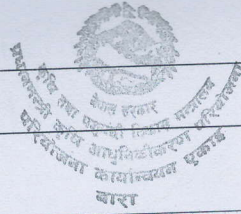 नेपाल सरकार
कृषि तथा पशुपन्छी विकास मन्त्रालय
प्रधानमन्त्री कृषि आधुनिकीकरण परियोजना
परियोजना कार्यान्वयन एकाई
बारा